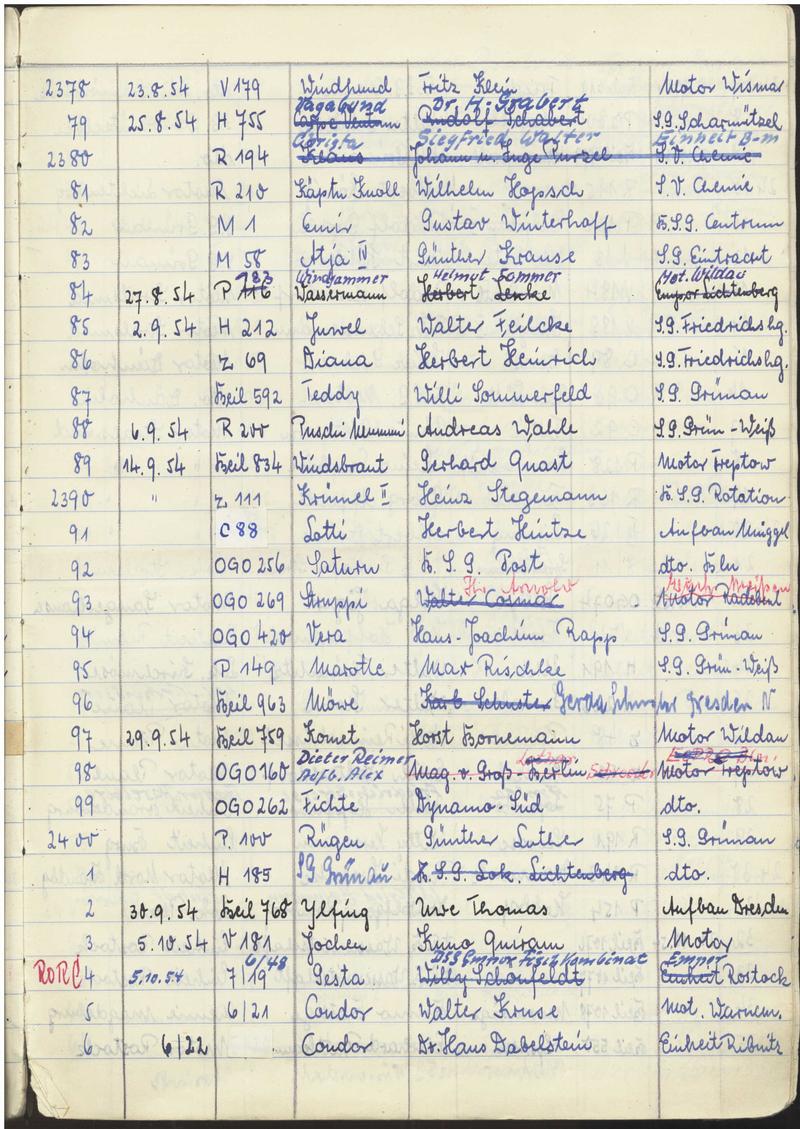 2378 23.8.54 V 179 Windhund Fritz Klein Motor Wismar
Vagabund Dr. H. Grabert
79 25.8.54 H 755 Rudolf Schabert S.G. Scharmützel
Christa Siegfried Walter Einheit B-m
2380 R 194 Klaus Johann u. Inge Purzel S.V. Chemie
81 R 210 Käptn Knoll Wilhelm Hopsch S.V. Chemie
82 M 1 Emir Gustav Winterhoff B.S.G. Centrum
83 M 58 Atja IV Günther Krause S.G. Eintracht
783 Windjammer Helmut Sommer Mot. Wildau
84 27.8.54 P 116 Wassermann Herbert Lenke Empor Lichtenberg
85 2.9.54 H 212 Juwel Walter Feilcke S.G. Friedrichshg.
86 Z 69 Diana Herbert Heinrich S.G. Friedrichshg.
87 Beil 592 Teddy Willi Sommerfeld S.G. Grünau
88 6.9.54 R 200 Puschi Mummi Andreas Wahle S.G. Grün-Weiß
89 14.9.54 Beil 834 Windsbraut Gerhard Quast Motor Treptow
2390 " Z 111 Krümel II Heinz Stegemann B.S.G. Rotation
91 C 88 Lotti Herbert Hintze Aufbau Müggel
92 OGO 256 Saturn B.S.G. Post dto. Bln
Arnold Meißen
93 OGO 269 Struppi Walter Cosmar Motor Radebeul
94 OGO 420 Vera Hans-Joachim Rapp S.G. Grünau
95 P 149 Marotte Max Rischke S.G. Grün-Weiß
96 Beil 963 Möwe Karl Schuster Gerda Schuster Dresden N
97 29.9.54 Beil 759 Komet Horst Bornemann Motor Wildau
Dieter Reimer Lothar
98 OGO 160 Aufb. Alex Mag v. Groß-Berlin Schroeder Motor Treptow
99 OGO 262 Fichte Dynamo-Süd dto.
2400 P 100 Rügen Günther Luther S.G. Grünau
1 H 185 SG Grünau B.S.G. Lok. Lichtenberg dto.
2 30.9.54 Beil 768 Ylfing Uwe Thomas Aufbau Dresden
3 5.10.54 V 181 Jochen Kuno Quiram Motor
6/48 BSG Empor Fischkombinat Empor
RORC 4 5.10.54 7/19 Gesta Willy Schönfeldt Einheit Rostock
5 6/21 Condor Walter Kruse Mot. Warnem.
6 6/22 Condor Dr. Hans Dabelstein Einheit Ribnitz